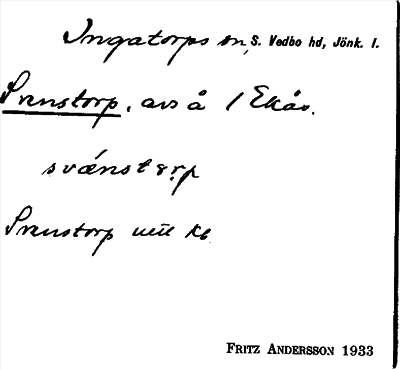 Ingatorps sn, S. Vedbo hd, Jönk. l.
Svenstorp, avs å / Ekås.
svä́nstǫrp
Svenstorp uttl kb
FRITZ ANDERSSON 1933